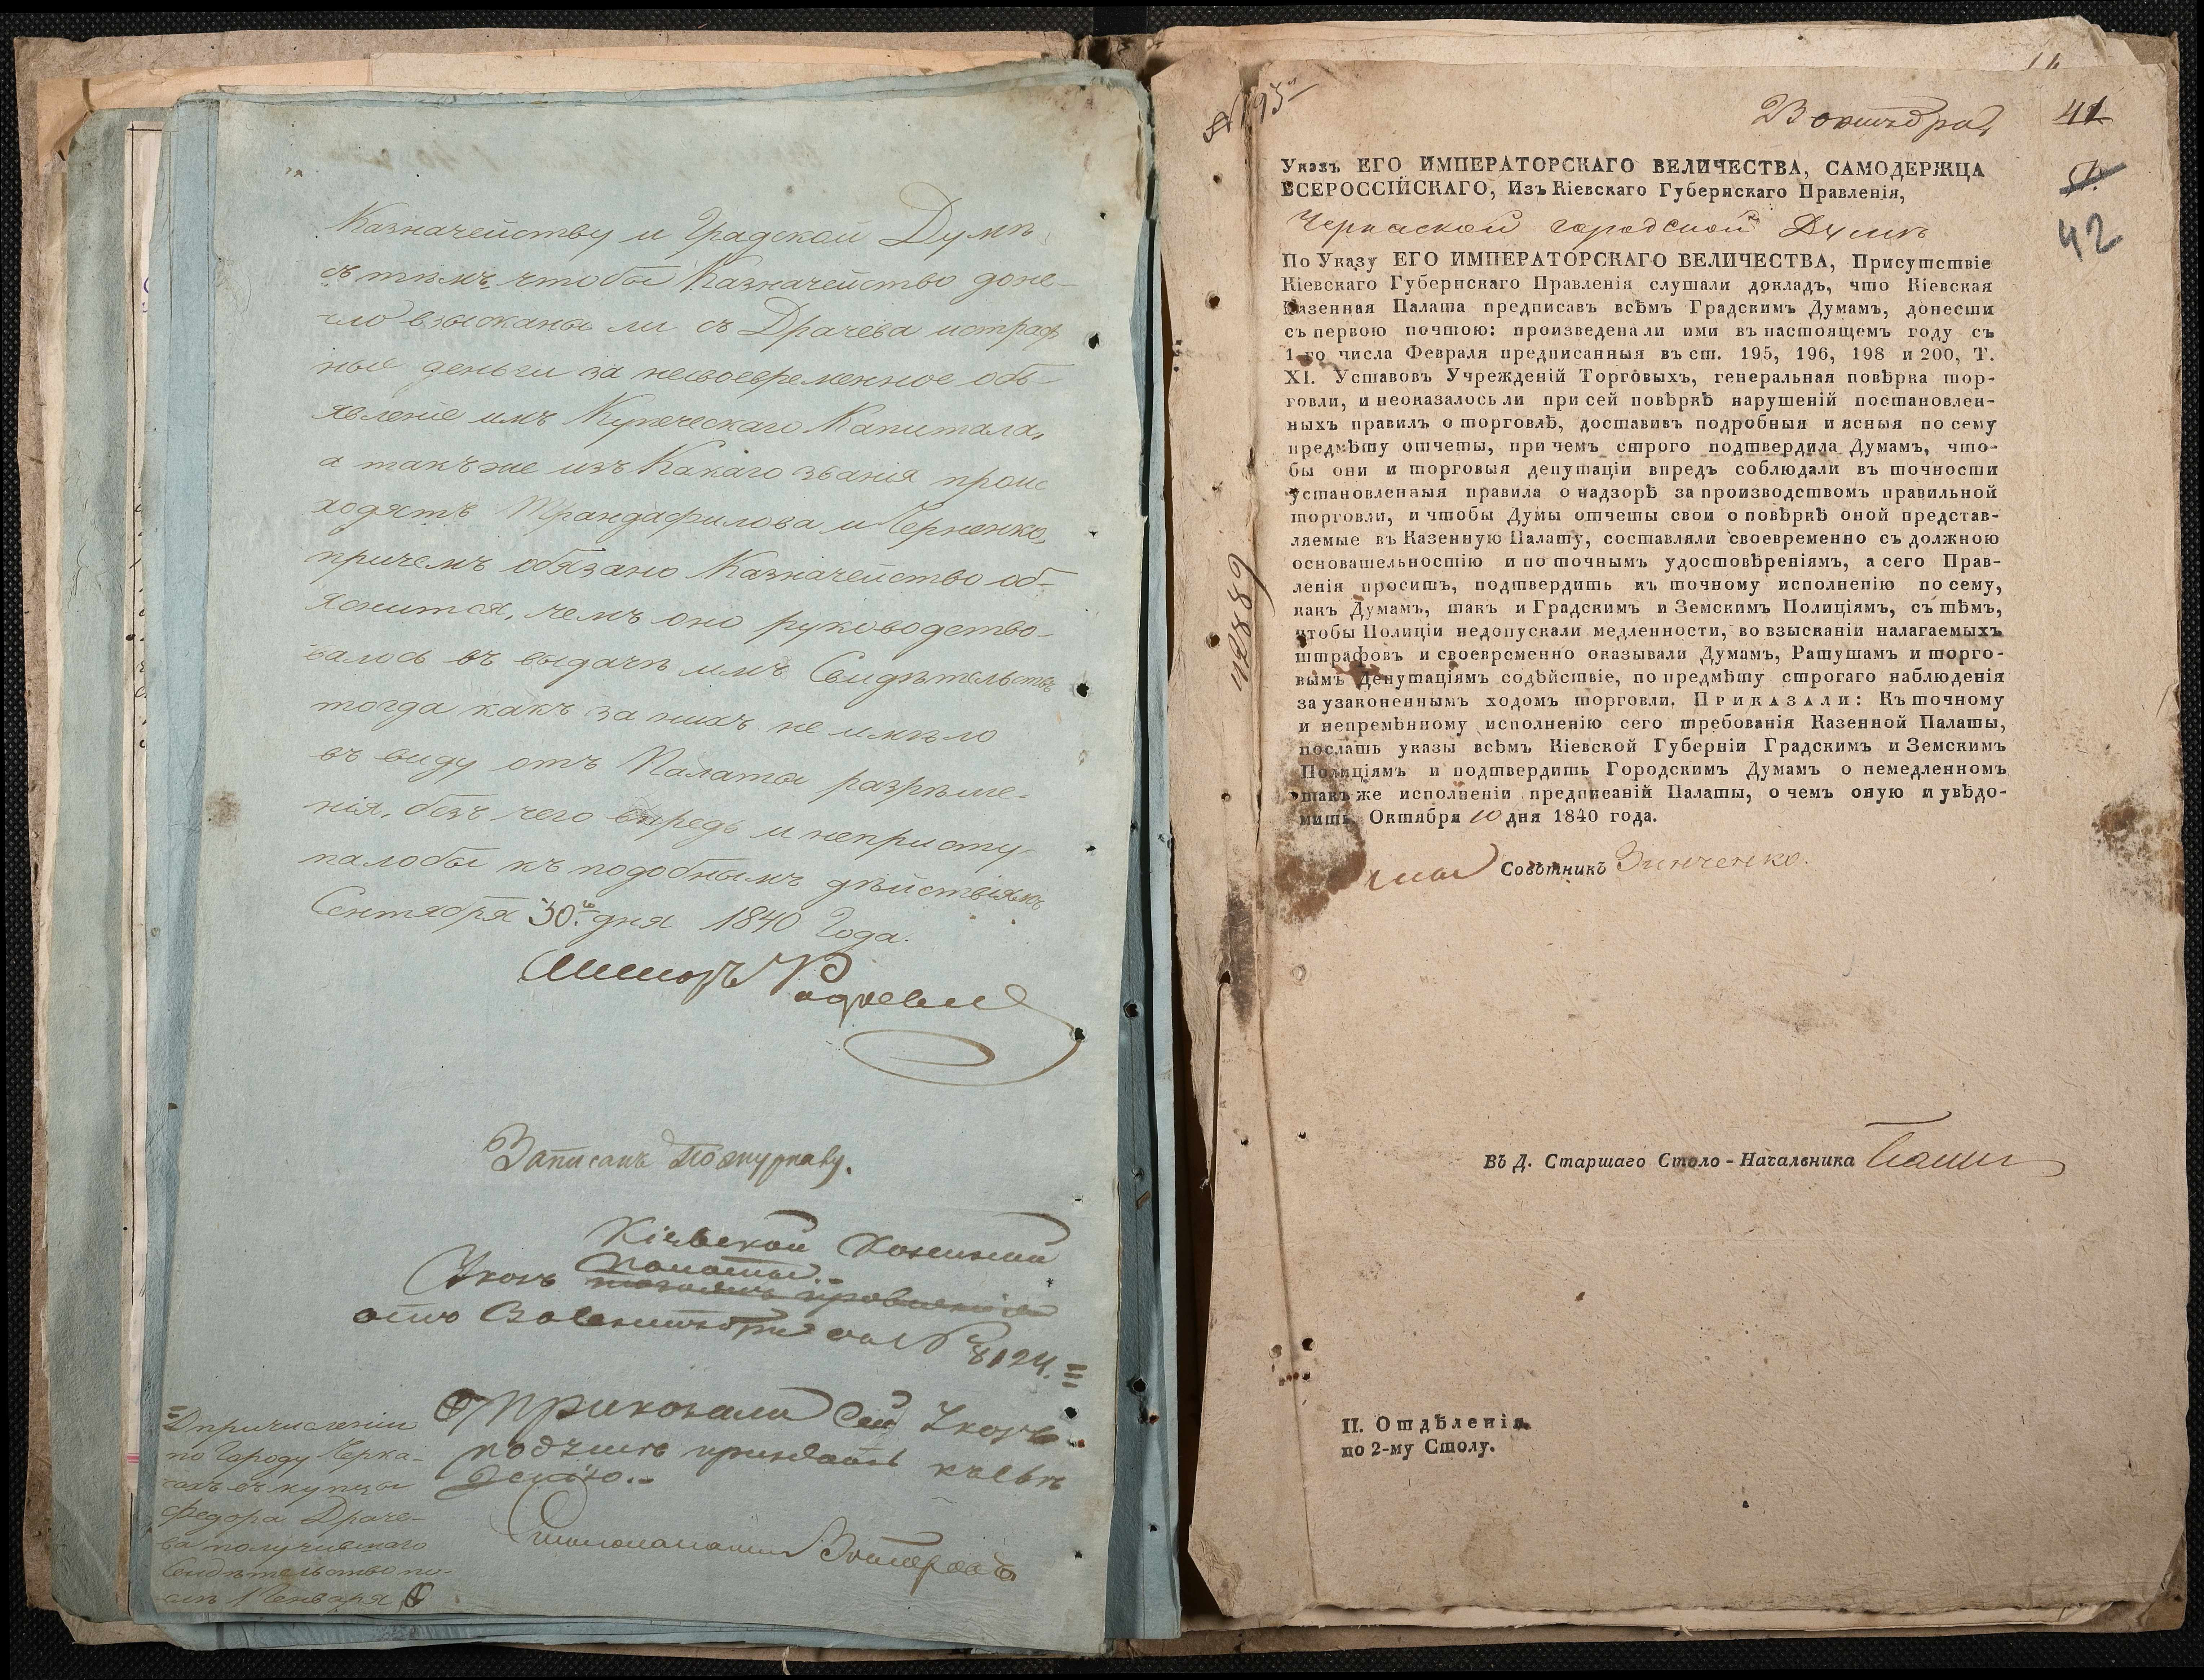 Казначейству и Градской Думѣ
съ тѣмъ чтобы Казначейство доне-
сло взысканы ли съ Драчева штраф
ные деньги за несвоевременное объ-
явленіе имъ Купеческаго Капитала,
а такъ же изъ Какаго званія проис
ходятъ Трандафилова и Черненко,
причемъ обязано Казначейство об-
яснится, чемъ оно руководство-
валось въ выдачѣ имъ Свидѣтельствъ
тогда какъ за нихъ не имѣло
въ виду отъ Палаты разрѣше-
нія, безъ чего впредь и непристу-
палобы къ подобнымъ дѣйствіямъ
Сентября 30 дня 1840 Года.
Записанъ по журналу.
Кіевской Казенной
Палаты.
Указъ
отъ
№ 8124.
Приказали Сей Указъ
къ
=О причисленіи
по Городу Черка-
сахъ въ купцы
Федора Драче-
ва получившаго
Свидѣтельство по-
слѣ 1 Генваря
23 октября
41
42
42889
Указъ ЕГО ИМПЕРАТОРСКАГО ВЕЛИЧЕСТВА, САМОДЕРЖЦА
ВСЕРОССІЙСКАГО, Изъ Кіевскаго Губернскаго Правленія,
Черкаской городской Думѣ
По Указу ЕГО ИМПЕРАТОРСКАГО ВЕЛИЧЕСТВА, Присутствіе
Кіевскаго Губернскаго Правленія слушали докладъ, что Кіевская
Казенная Палата предписавъ всѣмъ Градскимъ Думамъ, донести
съ первою почтою: произведена ли ими въ настоящемъ году съ
1-го числа Февраля предписанныя въ ст. 195, 196, 198 и 200, Т.
XI. Уставовъ Учрежденій Торговыхъ, генеральная повѣрка тор-
говли, и неоказалось ли при сей повѣркѣ нарушеній постановлен-
ныхъ правилъ о торговлѣ, доставивъ подробныя и ясныя по сему
предмѣту отчеты, при чемъ строго подтвердила Думамъ, что-
бы они и торговыя депутаціи впредъ соблюдали въ точности
установленныя правила о надзорѣ за производствомъ правильной
торговли, и чтобы Думы отчеты свои о повѣркѣ оной представ-
ляемые въ Казенную Палату, составляли своевременно съ должною
основательностію и по точнымъ удостовѣреніямъ, а сего Прав-
ленія проситъ, подтвердить къ точному исполненію по сему,
какъ Думамъ, такъ и Градскимъ и Земскимъ Полиціямъ, съ тѣмъ,
чтобы Полиціи недопускали медленности, во взысканіи налагаемыхъ
штрафовъ и своевременно оказывали Думамъ, Ратушамъ и торго-
вымъ Депутаціямъ содѣйствіе, по предмѣту строгаго наблюденія
за узаконеннымъ ходомъ торговли. ПРИКАЗАЛИ: Къ точному
и непремѣнному исполненію сего требованія Казенной Палаты,
послать указы всѣмъ Кіевской Губерніи Градскимъ и Земскимъ
Полиціямъ и подтвердить Городскимъ Думамъ о немедленномъ
такъ же исполненіи предписаній Палаты, о чемъ оную и увѣдо-
мить. Октября 10 дня 1840 года.
Совѣтникъ Зинченко.
Въ Д. Старшаго Столо-Начальника
II. Отдѣленія
по 2-му Столу.